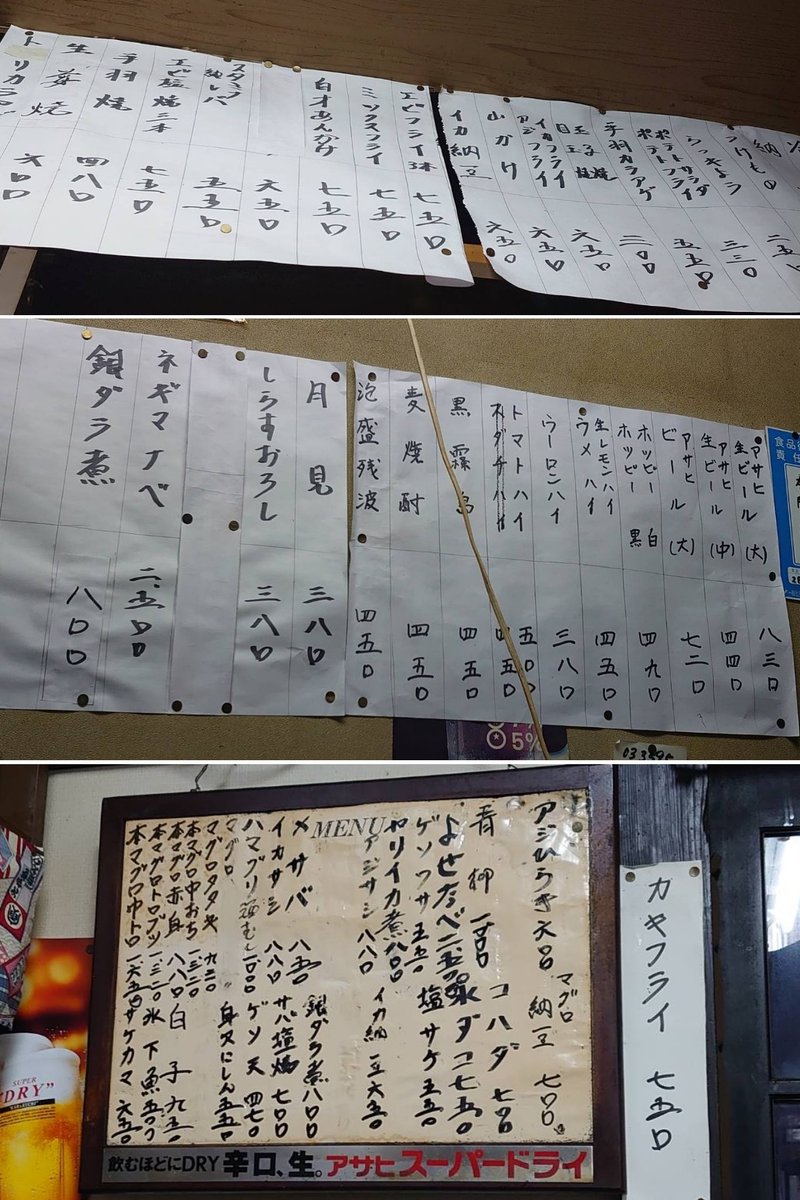 納
つけもの
らっきょう 三三〇
ポテトサラダ
ポテトフライ 五五〇
手羽カラアゲ 三〇〇
玉子焼
目玉焼 六五〇
イカフライ
アジフライ 六五〇
山かけ 六五〇
イカ納豆
エビフライ 三本 七五〇
ミックスフライ 七五〇
白才あんかけ 七五〇
六五〇
スタミナ
納レバ 五五〇
エビ塩焼三本 七五〇
手羽焼 四八〇
生姜焼 六〇〇
トリカラ
アサヒ
生ビール (大) 八三〇
アサヒ
生ビール (中) 四四〇
アサヒ
ビール (大) 七二〇
ホッピー 白
ホッピー 黒 四九〇
生レモンハイ
ウメハイ 四五〇
ウーロンハイ 三八〇
トマトハイ 五〇〇
スダチハイ 四五〇
黒霧島 四五〇
麦焼酎 四五〇
泡盛残波 四五〇
月見 三八〇
しらすおろし 三八〇
ネギマナベ 二、五〇〇
銀ダラ煮 八〇〇
食品
責任
5%
MENU
アジひらき 六五〇
マグロ納豆 七〇〇
青柳
コハダ 七〇〇
よせなべ
水ダコ 七五〇
ゲソフサ 五五〇
塩サケ 五五〇
ヤリイカ煮 八〇〇
アジサシ 八八〇
イカ納豆 六五〇
〆サバ 八五〇
銀ダラ煮 八〇〇
イカサシ 八八〇
サバ塩焼 七〇〇
ハマグリ酒むし
ゲソ天 四七〇
マグロ
身欠にしん 五五〇
マグロタタキ 九二〇
本マグロ中おち 一三二〇
本マグロ赤身 八八〇
白子 九五〇
本マグロトロブツ 一三二〇
氷下魚 五〇〇
本マグロ中トロ 一六五〇
サケカマ 六五〇
飲むほどにDRY 辛口、生。アサヒスーパードライ
カキフライ 七五〇
SUPER
"DRY"